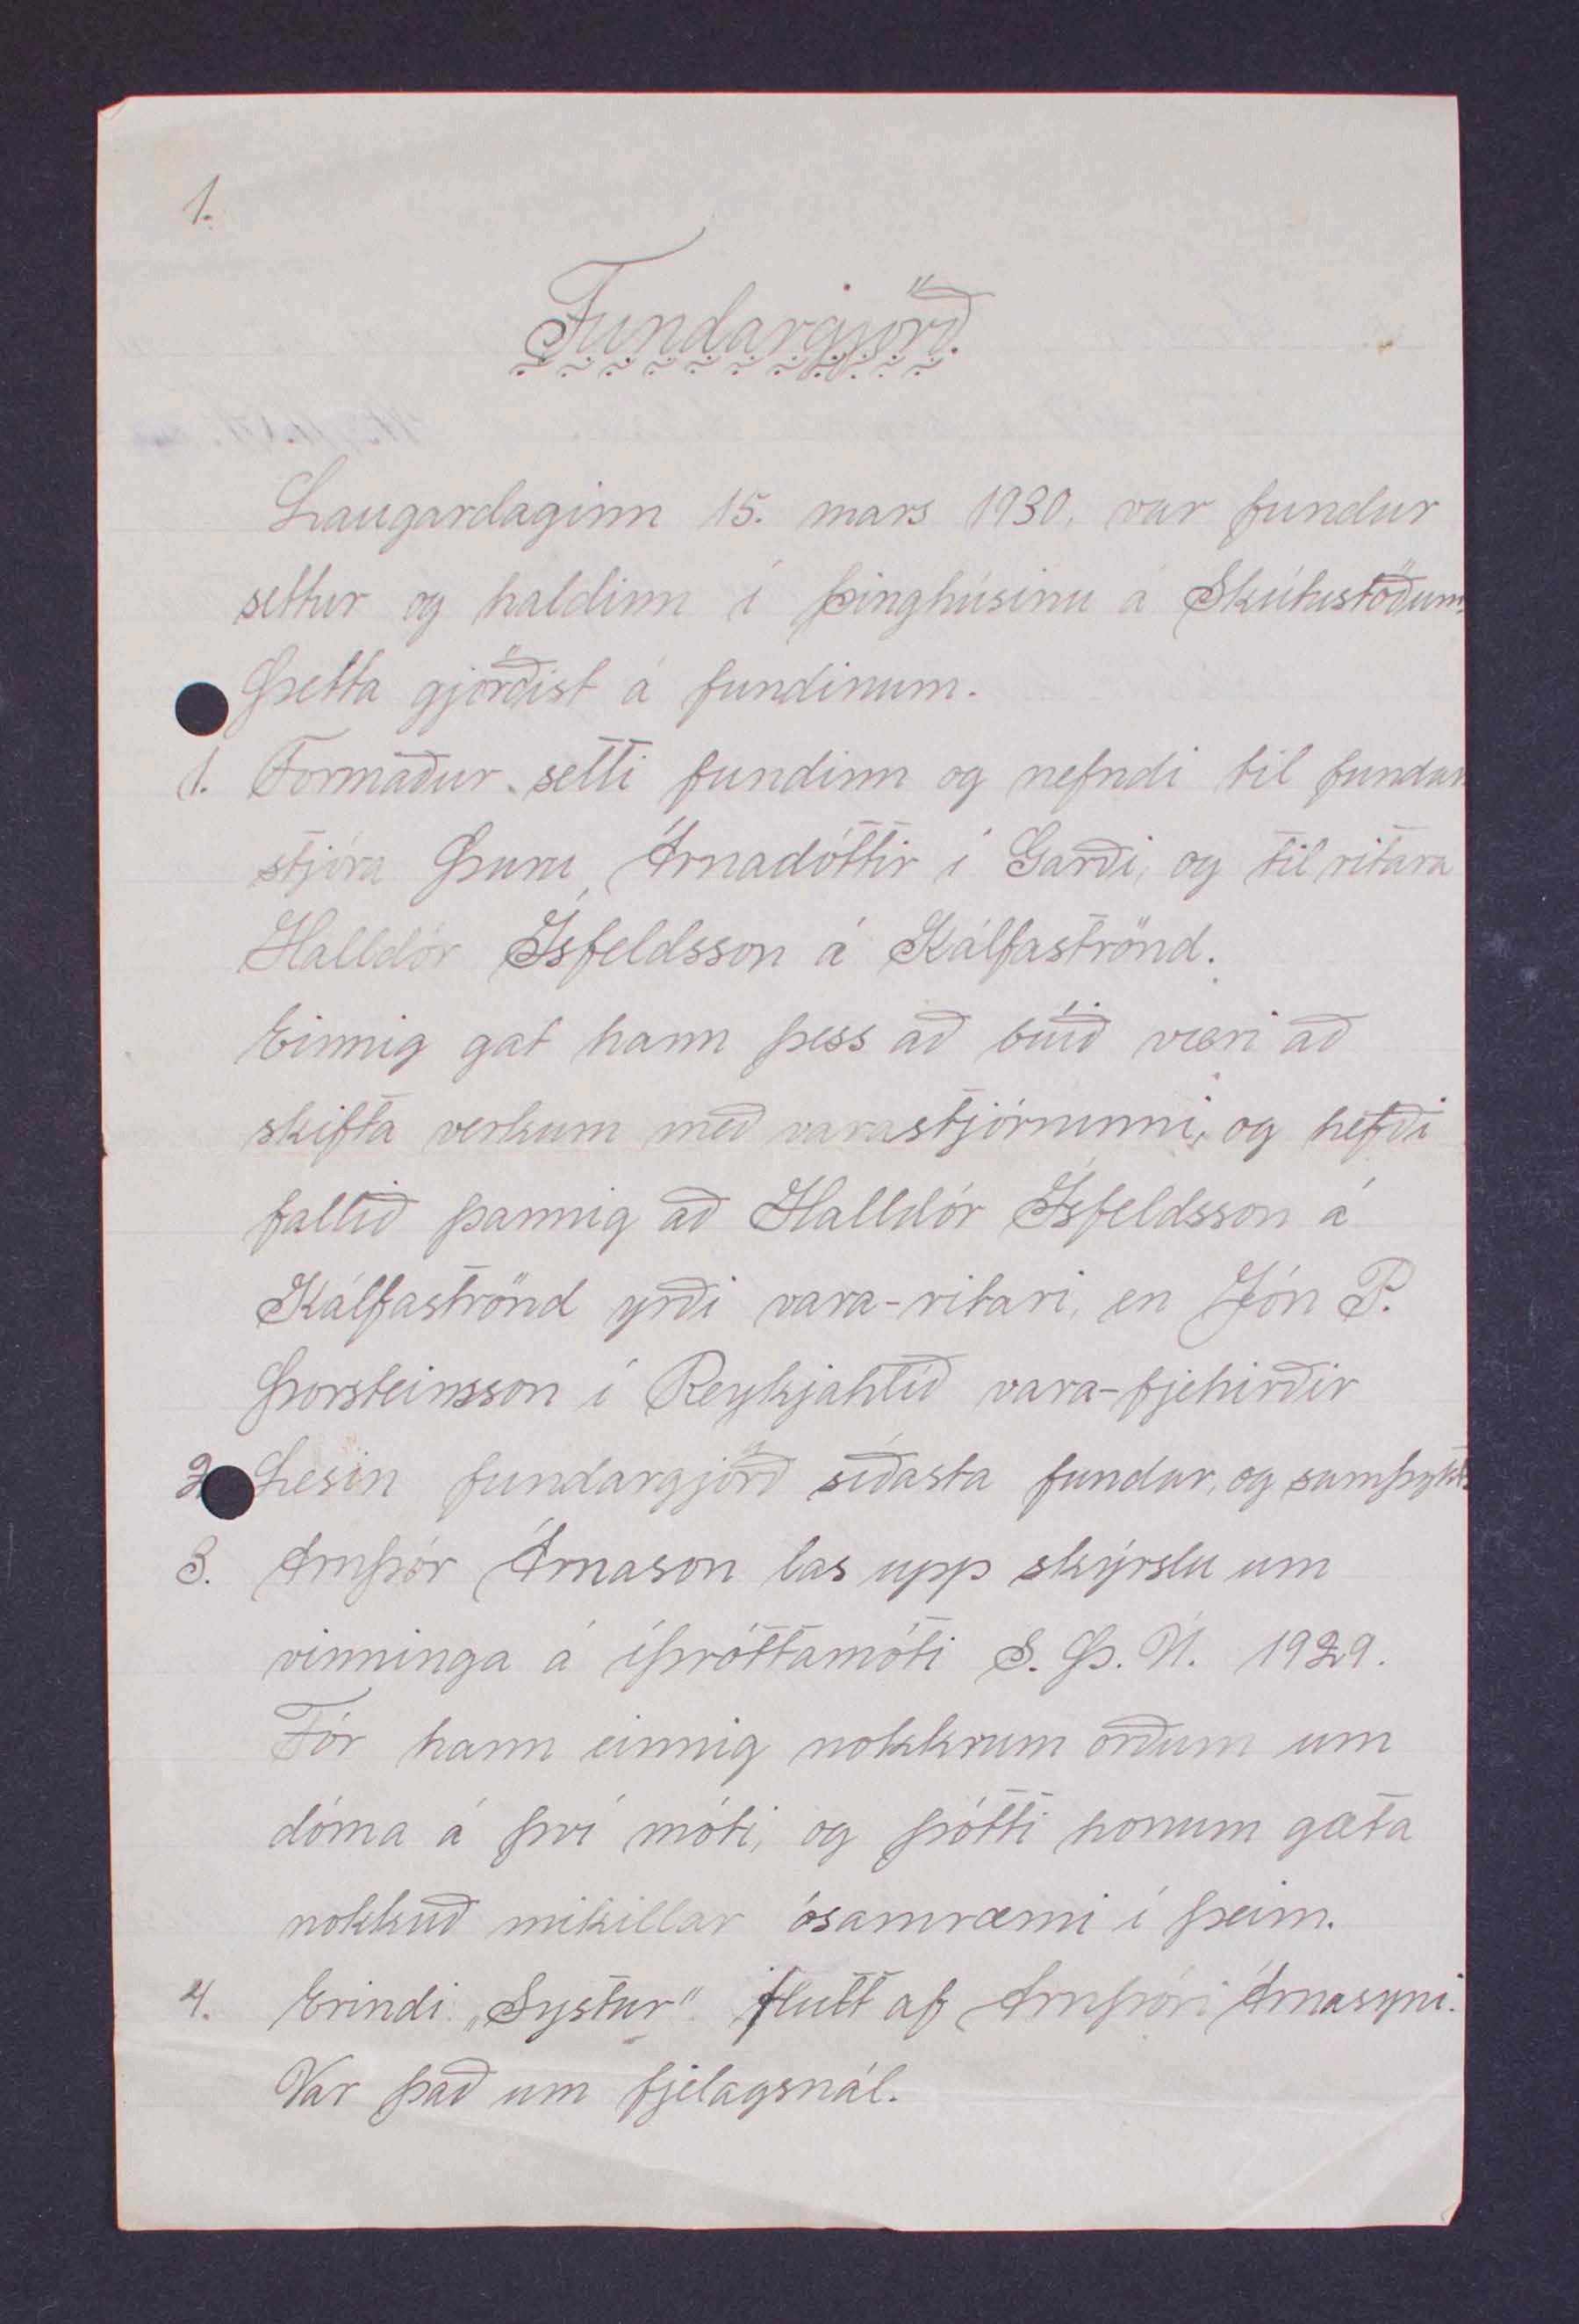 1.
Fundargjörð.
Laugardaginn 15. mars 1930. var fundur
settur og haldinn í þinghúsinu á Skútustöðum.
Þetta gjörðist á fundinum.
1. Formaður setti fundinn og nefndi til fundar
stjóra Þuru Árnadóttir í Garði, og til ritara
Halldór Ísfeldsson á Kálfaströnd.
Einnig gat hann þess að búið væri að
skifta verkum með varastjórninni, og hefði
fallið þannig að Halldór Ísfeldsson á
Kálfaströnd yrði vara-ritari, en Jón P.
Þorsteinsson í Reykjahlíð vara-fjehirðir
2. Lesin fundargjörð síðasta fundar, og samþykt.
3. Arnþór Árnason las upp skýrslu um
vinninga á íþróttamóti S. Þ. U. 1929.
Fór hann einnig nokkrum orðum um
dóma á því móti, og þótti honum gæta
nokkuð mikillar ósamræmi í þeim.
4. Erindi: „Systur" flutt af Arnþóri Árnasyni.
Var það um fjelagsmál.